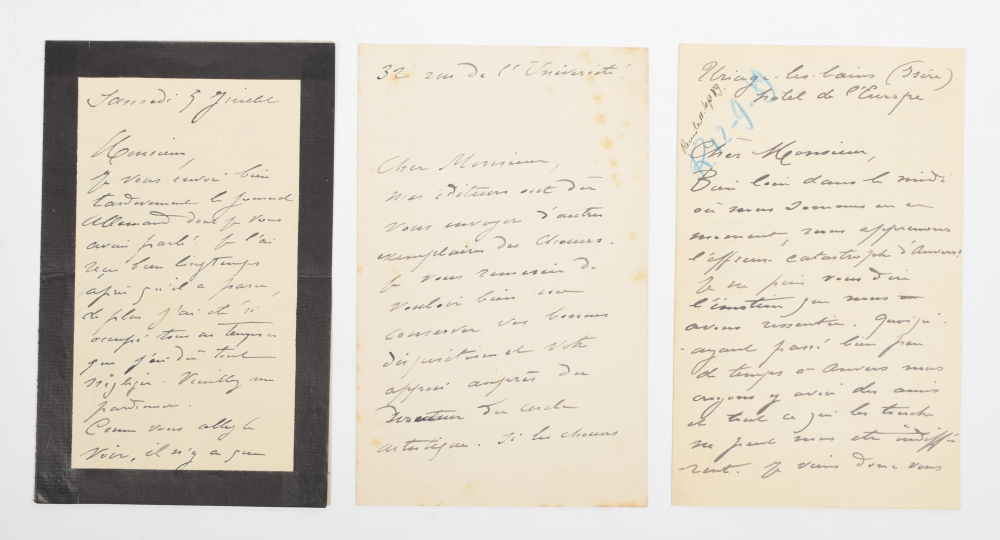 Samedi 5 Juillet
Monsieur,
Je vous envoie bien
tardivement le Journal
Allemand dont je vous
avais parlé. Je l'ai
reçu bien longtemps
après qu'il a paru,
de plus j'ai été si
occupé tous ces temps ci
que j'ai dû tout
négliger. Veuillez me
pardonner.
Comme vous allez le
voir, il n'y a que
32 rue de l'Université
Cher Monsieur,
mes éditeurs ont dû
vous envoyer d'autres
exemplaires des chœurs.
Je vous remercie de
vouloir bien me
conserver vos bonnes
dispositions et votre
appui auprès du
Directeur du cercle
artistique. Si les chœurs
Uriage-les-bains (Isère)
hotel de l'Europe
R 12-9-89
Cher Monsieur,
Bien loin dans le midi
où nous sommes en ce
moment, nous apprenons
l'affreuse catastrophe d'Anvers!
Je ne puis vous dire
l'émotion que nous
avons ressentie. Quoiqu'
ayant passé bien peu
de temps à Anvers nous
croyons y avoir des amis
et tout ce qui les touche
ne peut nous être indiffé-
-rent. Je viens donc vous